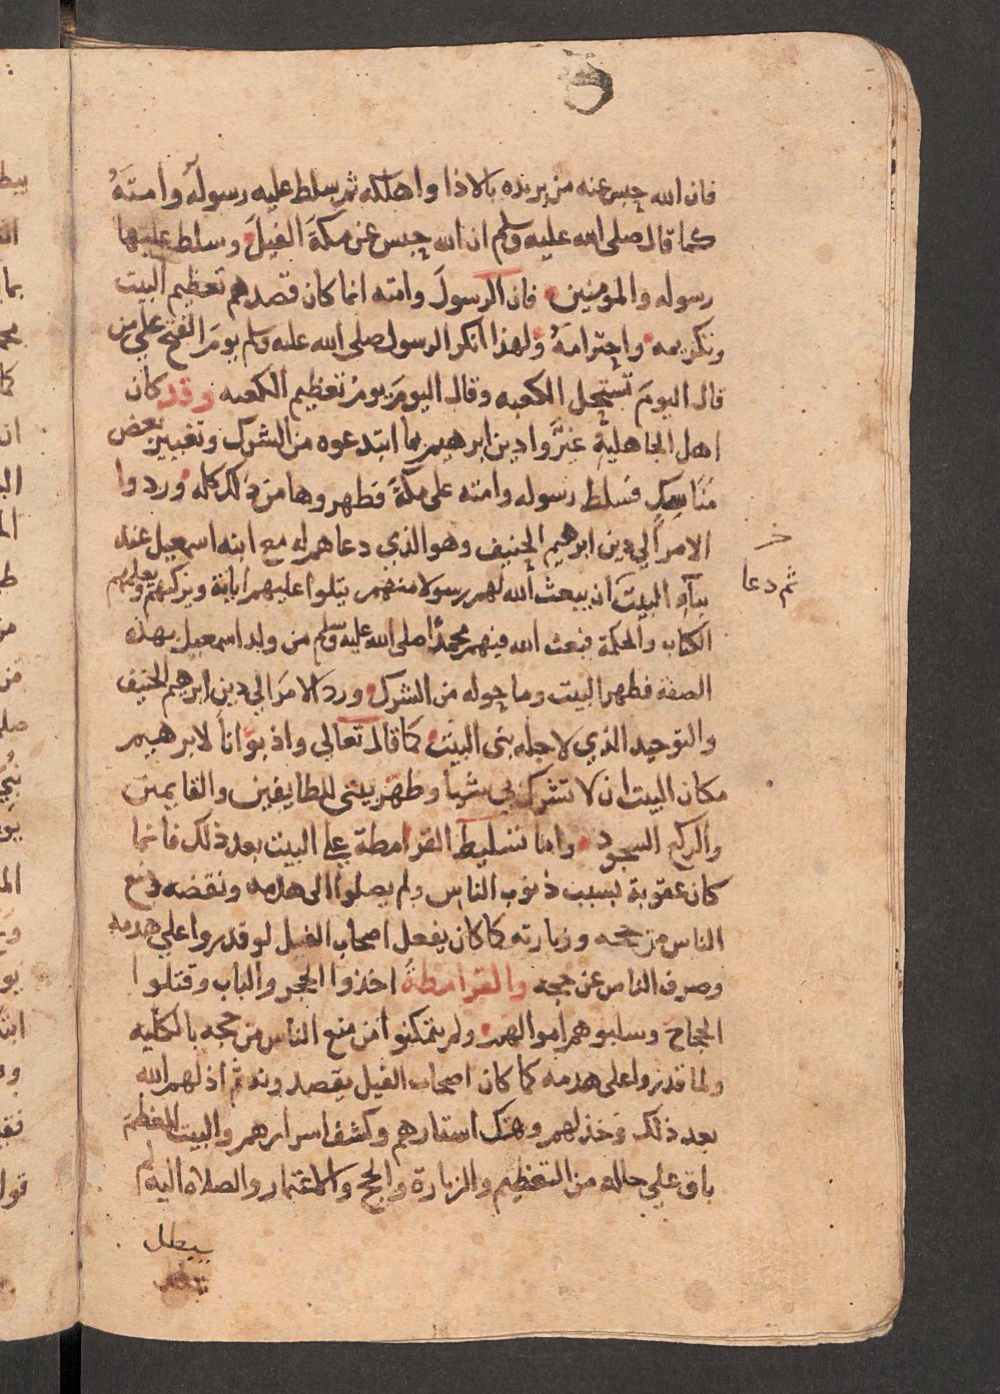 فان الله حبس عنه من يريده بالاذا واهلكه ثم سلط عليه رسوله وامته
كما قال صلى الله عليه وسلم ان الله حبس عن مكة الفيل وسلط عليها
رسوله والمومنين فان الرسول وامته انما كان قصدهم تعظيم البيت
وتكريمه واحترامه ولهذا انكر الرسول صلى الله عليه وسلم يوم الفتح على من
قال اليوم تستحل الكعبه وقال اليوم يوم تعظيم الكعبه وقد كان
اهل الجاهلية غيروا دين ابرهيم بما ابتدعوه من الشرك وتغيير بعض
مناسك فسلط رسوله وامته على مكة فطهروها من ذلك كله وردوا
الامر الي دين ابرهيم الحنيف وهو الذي دعا لهم مع ابنه اسمعيل عند
ثم دعا
بنآء البيت ان يبعث الله لهم رسولا منهم يتلوا عليهم اياته ويزكيهم ويعلمهم
الكتاب والحكمة فبعث الله فيهم محمدا صلى الله عليه وسلم من ولد اسمعيل بهذه
الصفة فطهر البيت وما حوله من الشرك ورد الامر الي دين ابرهيم الحنيف
والتوحيد الذي لاجله بنى البيت كما قال تعالي واذ بوانا لابرهيم
مكان البيت ان لا تشرك بي شيا وطهر بيتى للطايفين والقايمين
والركع السجود واما تسليط القرامطة علي البيت بعد ذلك فانما
كان عقوبة بسبب ذنوب الناس ولم يصلوا الى هدمه ونقضه ومنع
الناس من حجه وزيارته كما كان يفعل اصحاب الفيل لو قدروا علي هدمه
وصرف الناس عن حجه والقرامطة اخذوا الحجر والباب وقتلوا
الحجاج وسلبوهم اموالهم ولم يتمكنوا من منع الناس من حجه بالكليه
ولا قدروا على هدمه كما كان اصحاب الفيل يقصدونه ثم اذلهم الله
بعد ذلك وخذلهم وهتك استارهم وكشف اسرارهم والبيت المعظم
باق علي حاله من التعظيم والزيارة والحج والاعتمار والصلاه اليه لم
يبطل